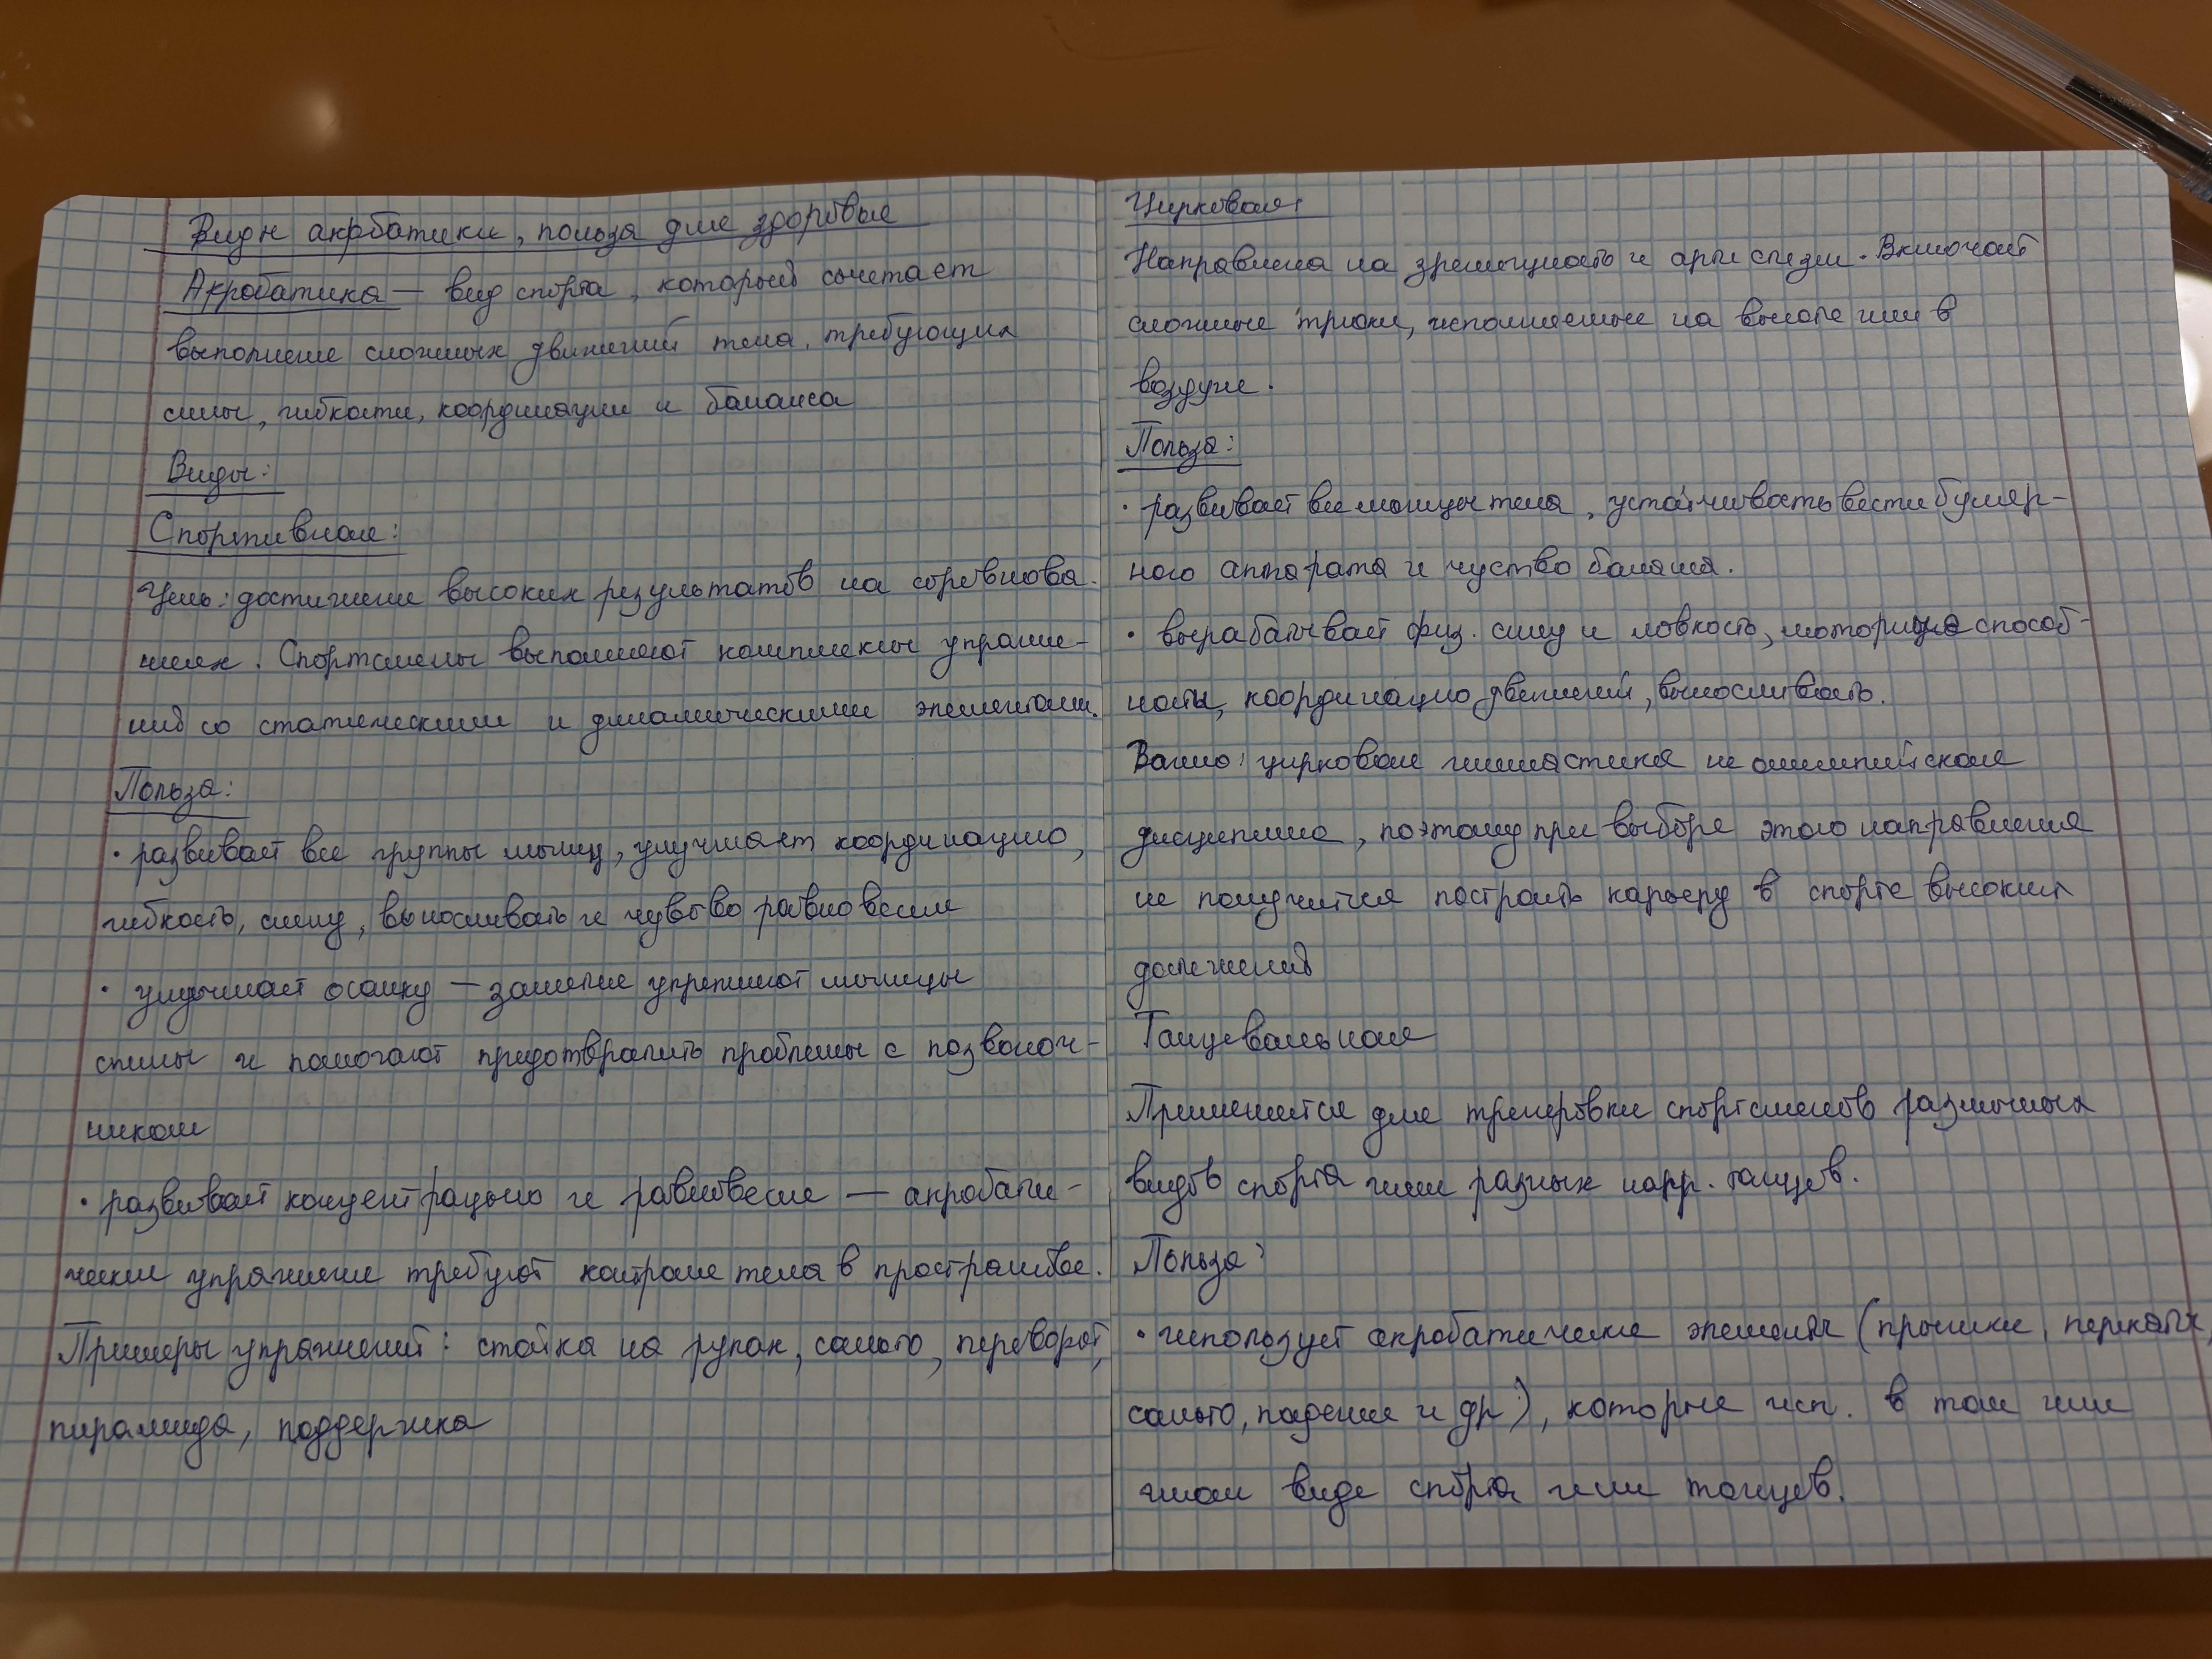 Виды акрбатики, польза для здоровья
Акробатика — вид спорта, который сочетает
выполнение сложных движений тела, требующих
силы, гибкости, координации и баланса
Виды:
Спортивная:
Цель: достижение высоких результатов на соревнова-
ниях. Спортсмены выполняют комплексы упражне-
ний со статическими и динамическими элементами.
Польза:
• развивает все группы мышц, улучшает координацию,
гибкость, силу, выносливость и чувство равновесия
• улучшает осанку — занятия укрепляют мышцы
спины и помогают предотвратить проблемы с позвоноч-
ником
• развивает концентрацию и равновесие — акробати-
ческие упражнения требуют контроля тела в пространстве.
Примеры упражнений: стойка на руках, сальто, переворот,
пирамида, поддержка
Цирковая:
Направлена на зрелищность и артистизм. Включает
сложные трюки, исполняемые на высоте или в
воздухе.
Польза:
• развивает все мышцы тела, устойчивость вестибуляр-
ного аппарата и чуство баланса.
• вырабатывает физ. силу и ловкость, моторные способ-
ности, координацию движений, выносливость.
Важно: цирковая гимнастика не олимпийская
дисциплина, поэтому при выборе этого направления
не получится построить карьеру в спорте высоких
достижений
Танцевальная
Применяется для тренировки спортсменов различных
видов спорта или разных напр. танцев.
Польза:
• использует акробатические элементы (прыжки, перекаты,
сальто, падения и др), которые исп. в том или
ином виде спорта или танцев.